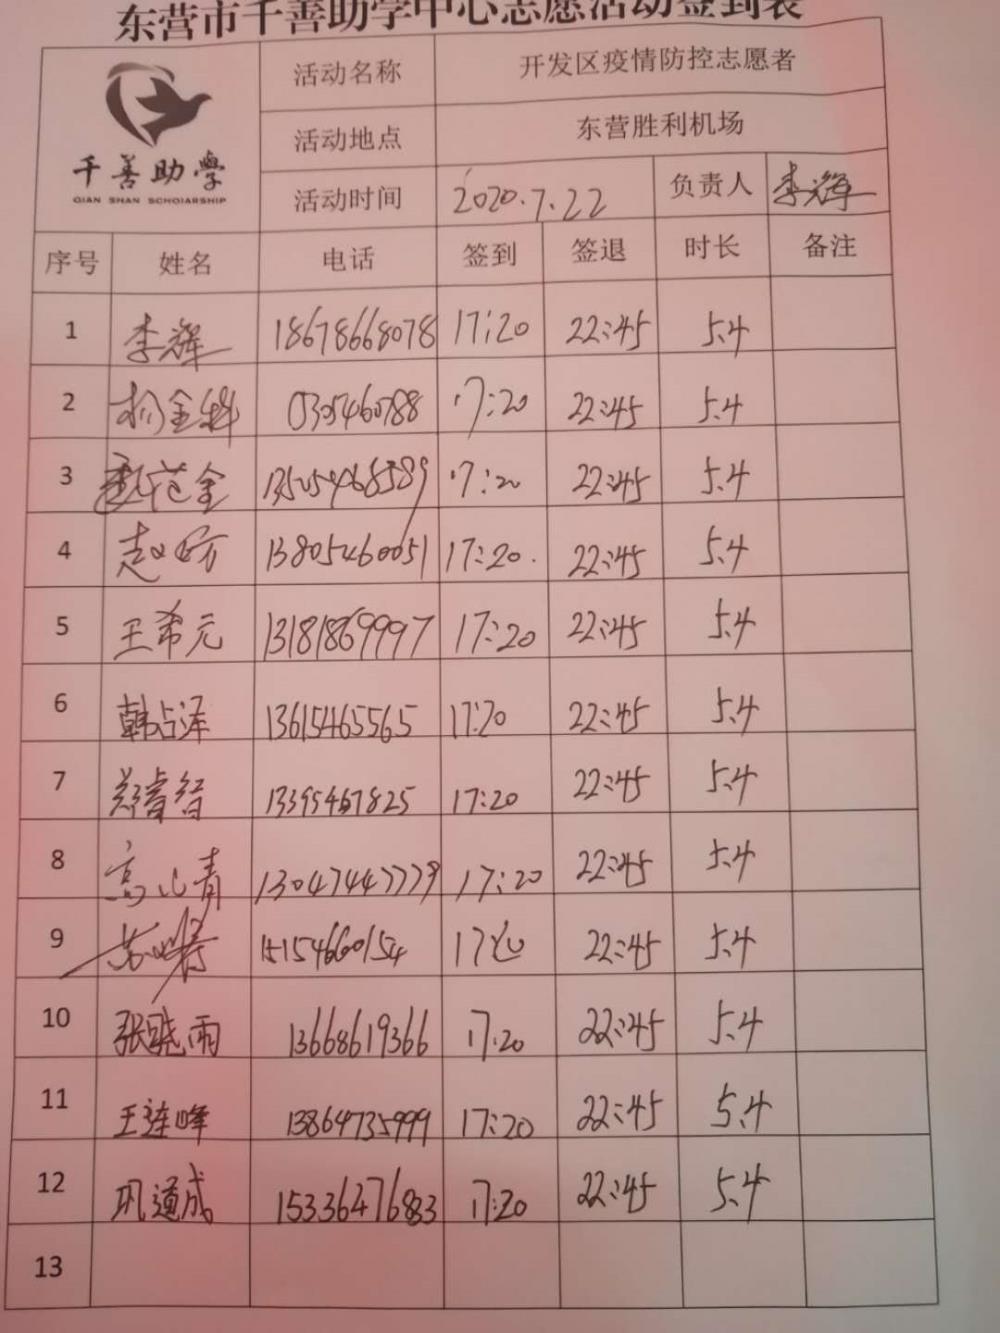 东营市千善助学中心志愿活动签到表
千善助学
QIAN SHAN SCHOIARSHIP
活动名称 开发区疫情防控志愿者
活动地点 东营胜利机场
活动时间 2020.7.22 负责人 李辉
序号 姓名 电话 签到 签退 时长 备注
1 李辉 18678668078 17:20 22:45 5.4
2 17:20 22:45 5.4
3 范金 17:20 22:45 5.4
4 赵 13805460051 17:20. 22:45 5.4
5 王希元 13181869997 17:20 22:45 5.4
6 韩占泽 13615465565 17:20 22:45 5.4
7 郑睿智 13395467825 17:20 22:45 5.4
8 高山青 13047447779 17:20 22:45 5.4
9 苏 15154660154 22:45 5.4
10 张晓雨 13668619366 17:20 22:45 5.4
11 王连峰 13864735999 17:20 22:45 5.4
12 巩道成 15336476883 17:20 22:45 5.4
13